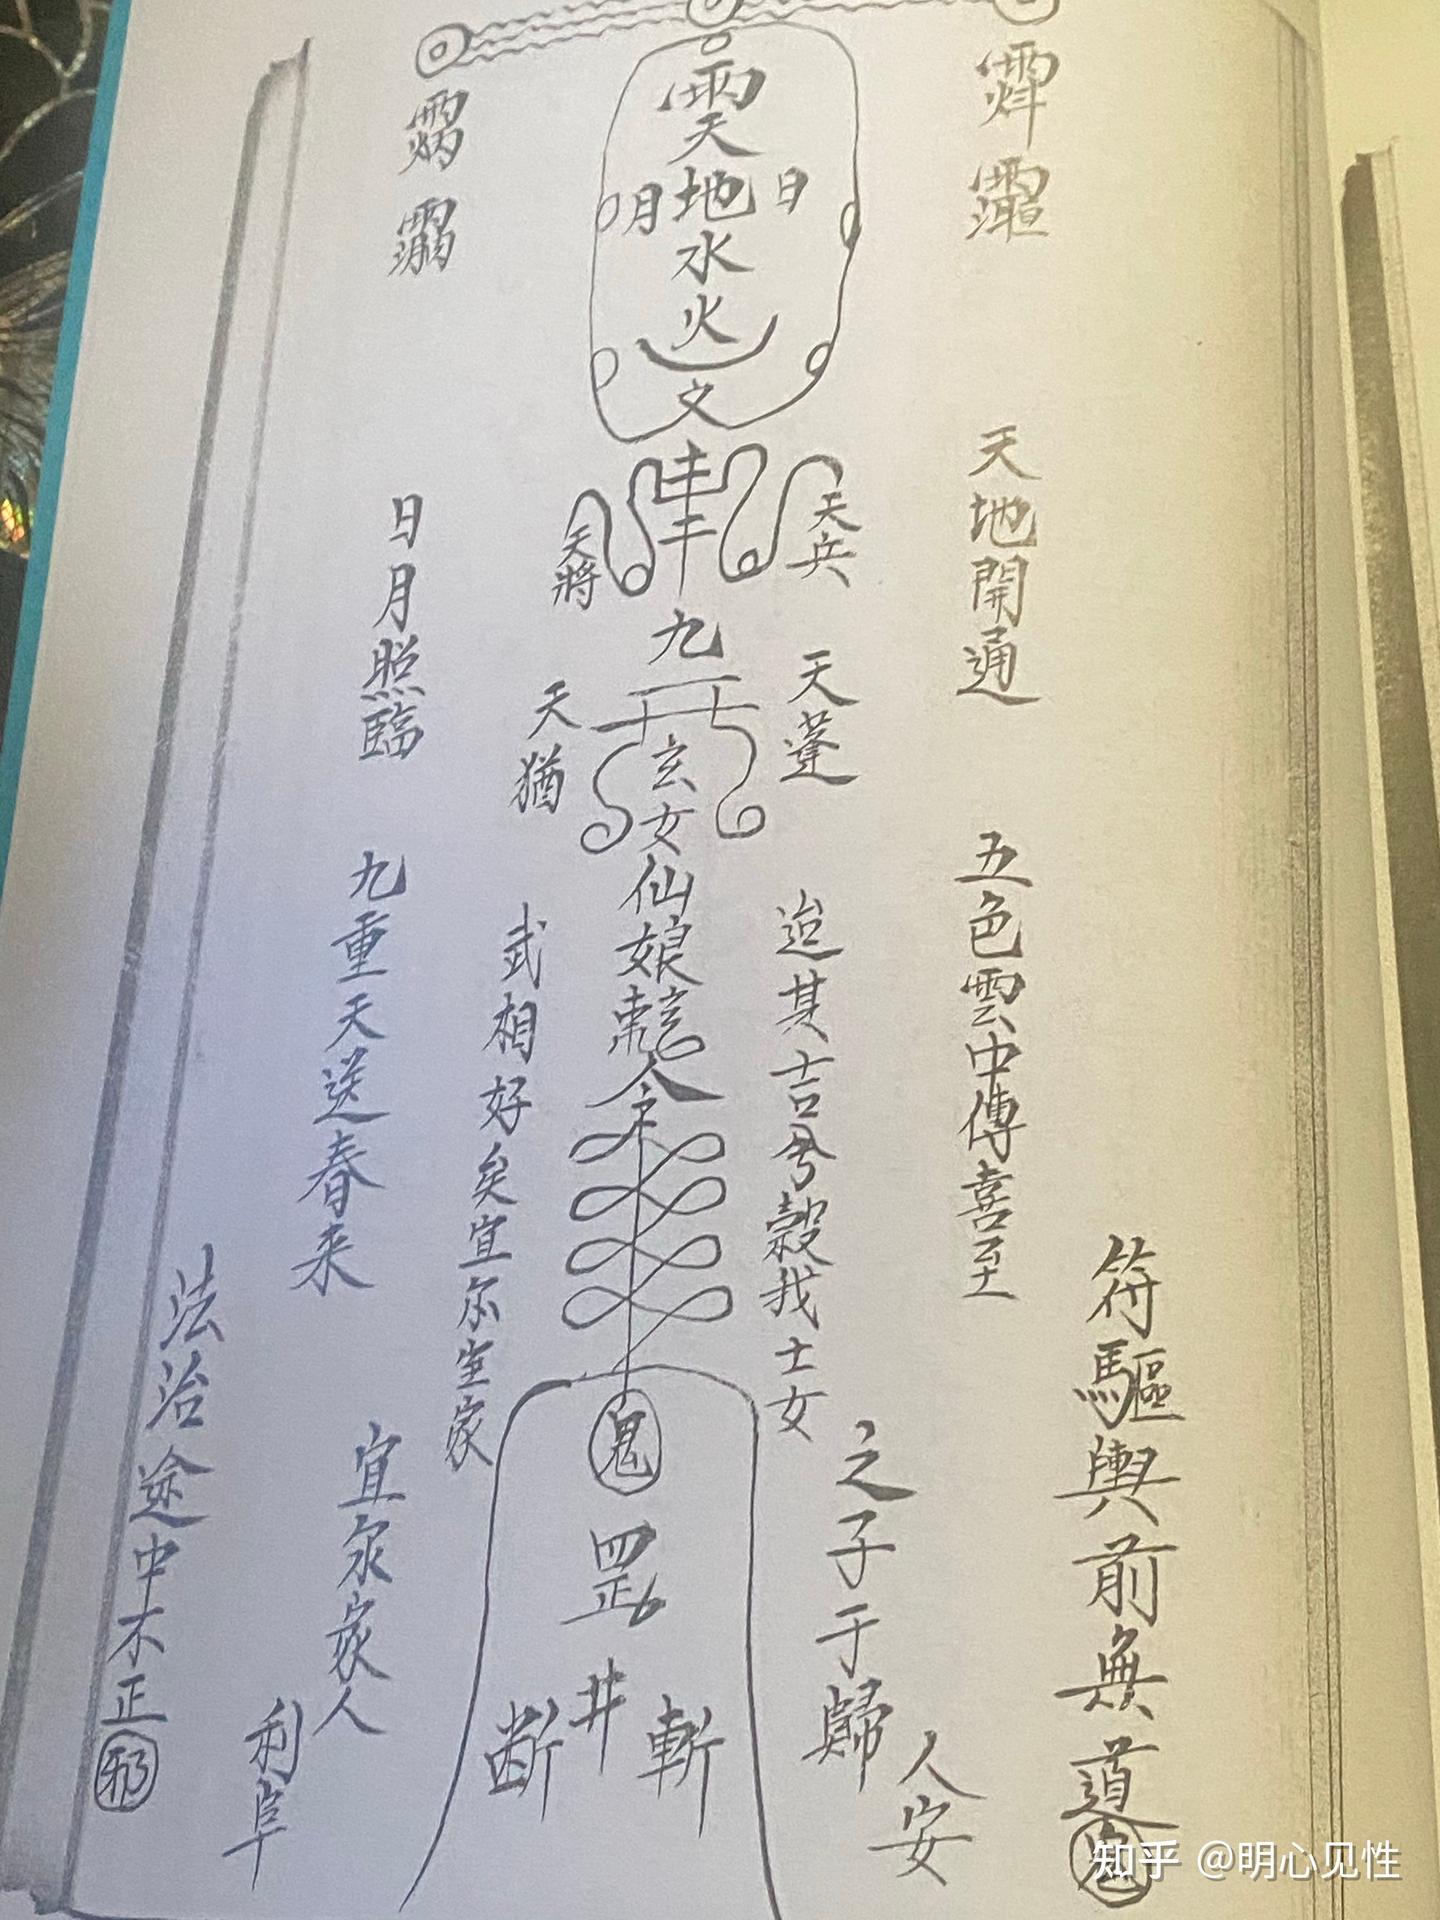 天地開通
五色雲中傳喜至
符驅輿前無道鬼
天兵
天蓬
迨其吉兮穀我士女
之子于歸
人安
日
天地水火
文
九
玄女仙娘
令
鬼
罡
井
斬
月
天將
天猶
武相好矣宜尔室家
断
日月照臨
九重天送春来
宜尔家人
利阜
法治途中不正邪
知乎 @明心见性